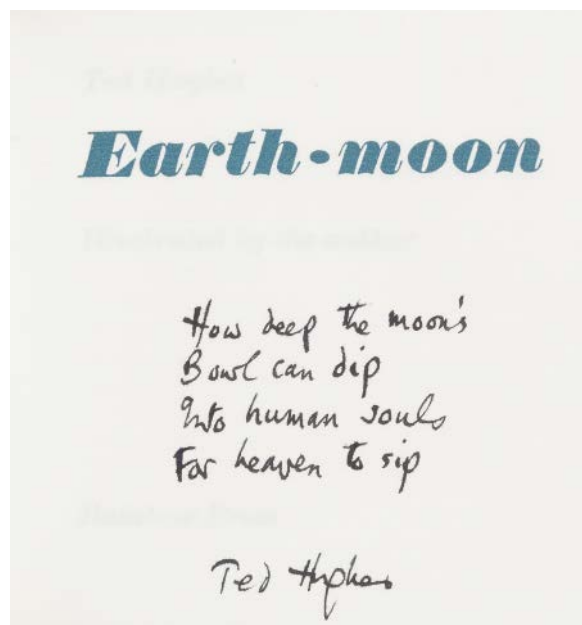 Ted Hughes
Earth-moon
Illustrated by the author
How deep the moon's
Bowl can dip
Into human souls
For heaven to sip
Rainbow Press
Ted Hughes